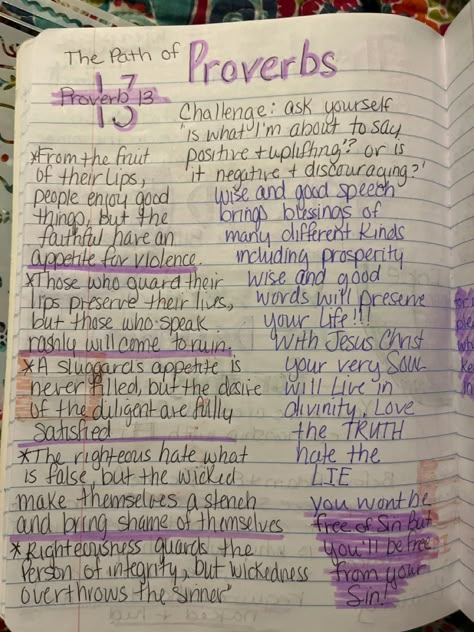 The Path of Proverbs
Proverb 13
13
Challenge: ask yourself
'is what I'm about to say
positive + uplifting'? or is
it negative + discouraging?'
*From the fruit
of their Lips,
people enjoy good
things, but the
faithful have an
appetite for violence.
*Those who guard their
lips preserve their lives,
but those who speak
rashly will come to ruin.
*A sluggards appetite is
never filled, but the desire
of the diligent are fully
satisfied
*The righteous hate what
is false, but the wicked
make themselves a stench
and bring shame of themselves
*Righteousness guards the
Person of integrity, but wickedness
overthrows the sinner'
wise and good speech
brings blessings of
many different kinds
including prosperity
wise and good
words will preserve
your Life!!!
With Jesus Christ
your very SOUL
will Live in
divinity, Love
the TRUTH
hate the
LIE
you wont be
free of Sin but
you'll be free
from your
Sin!